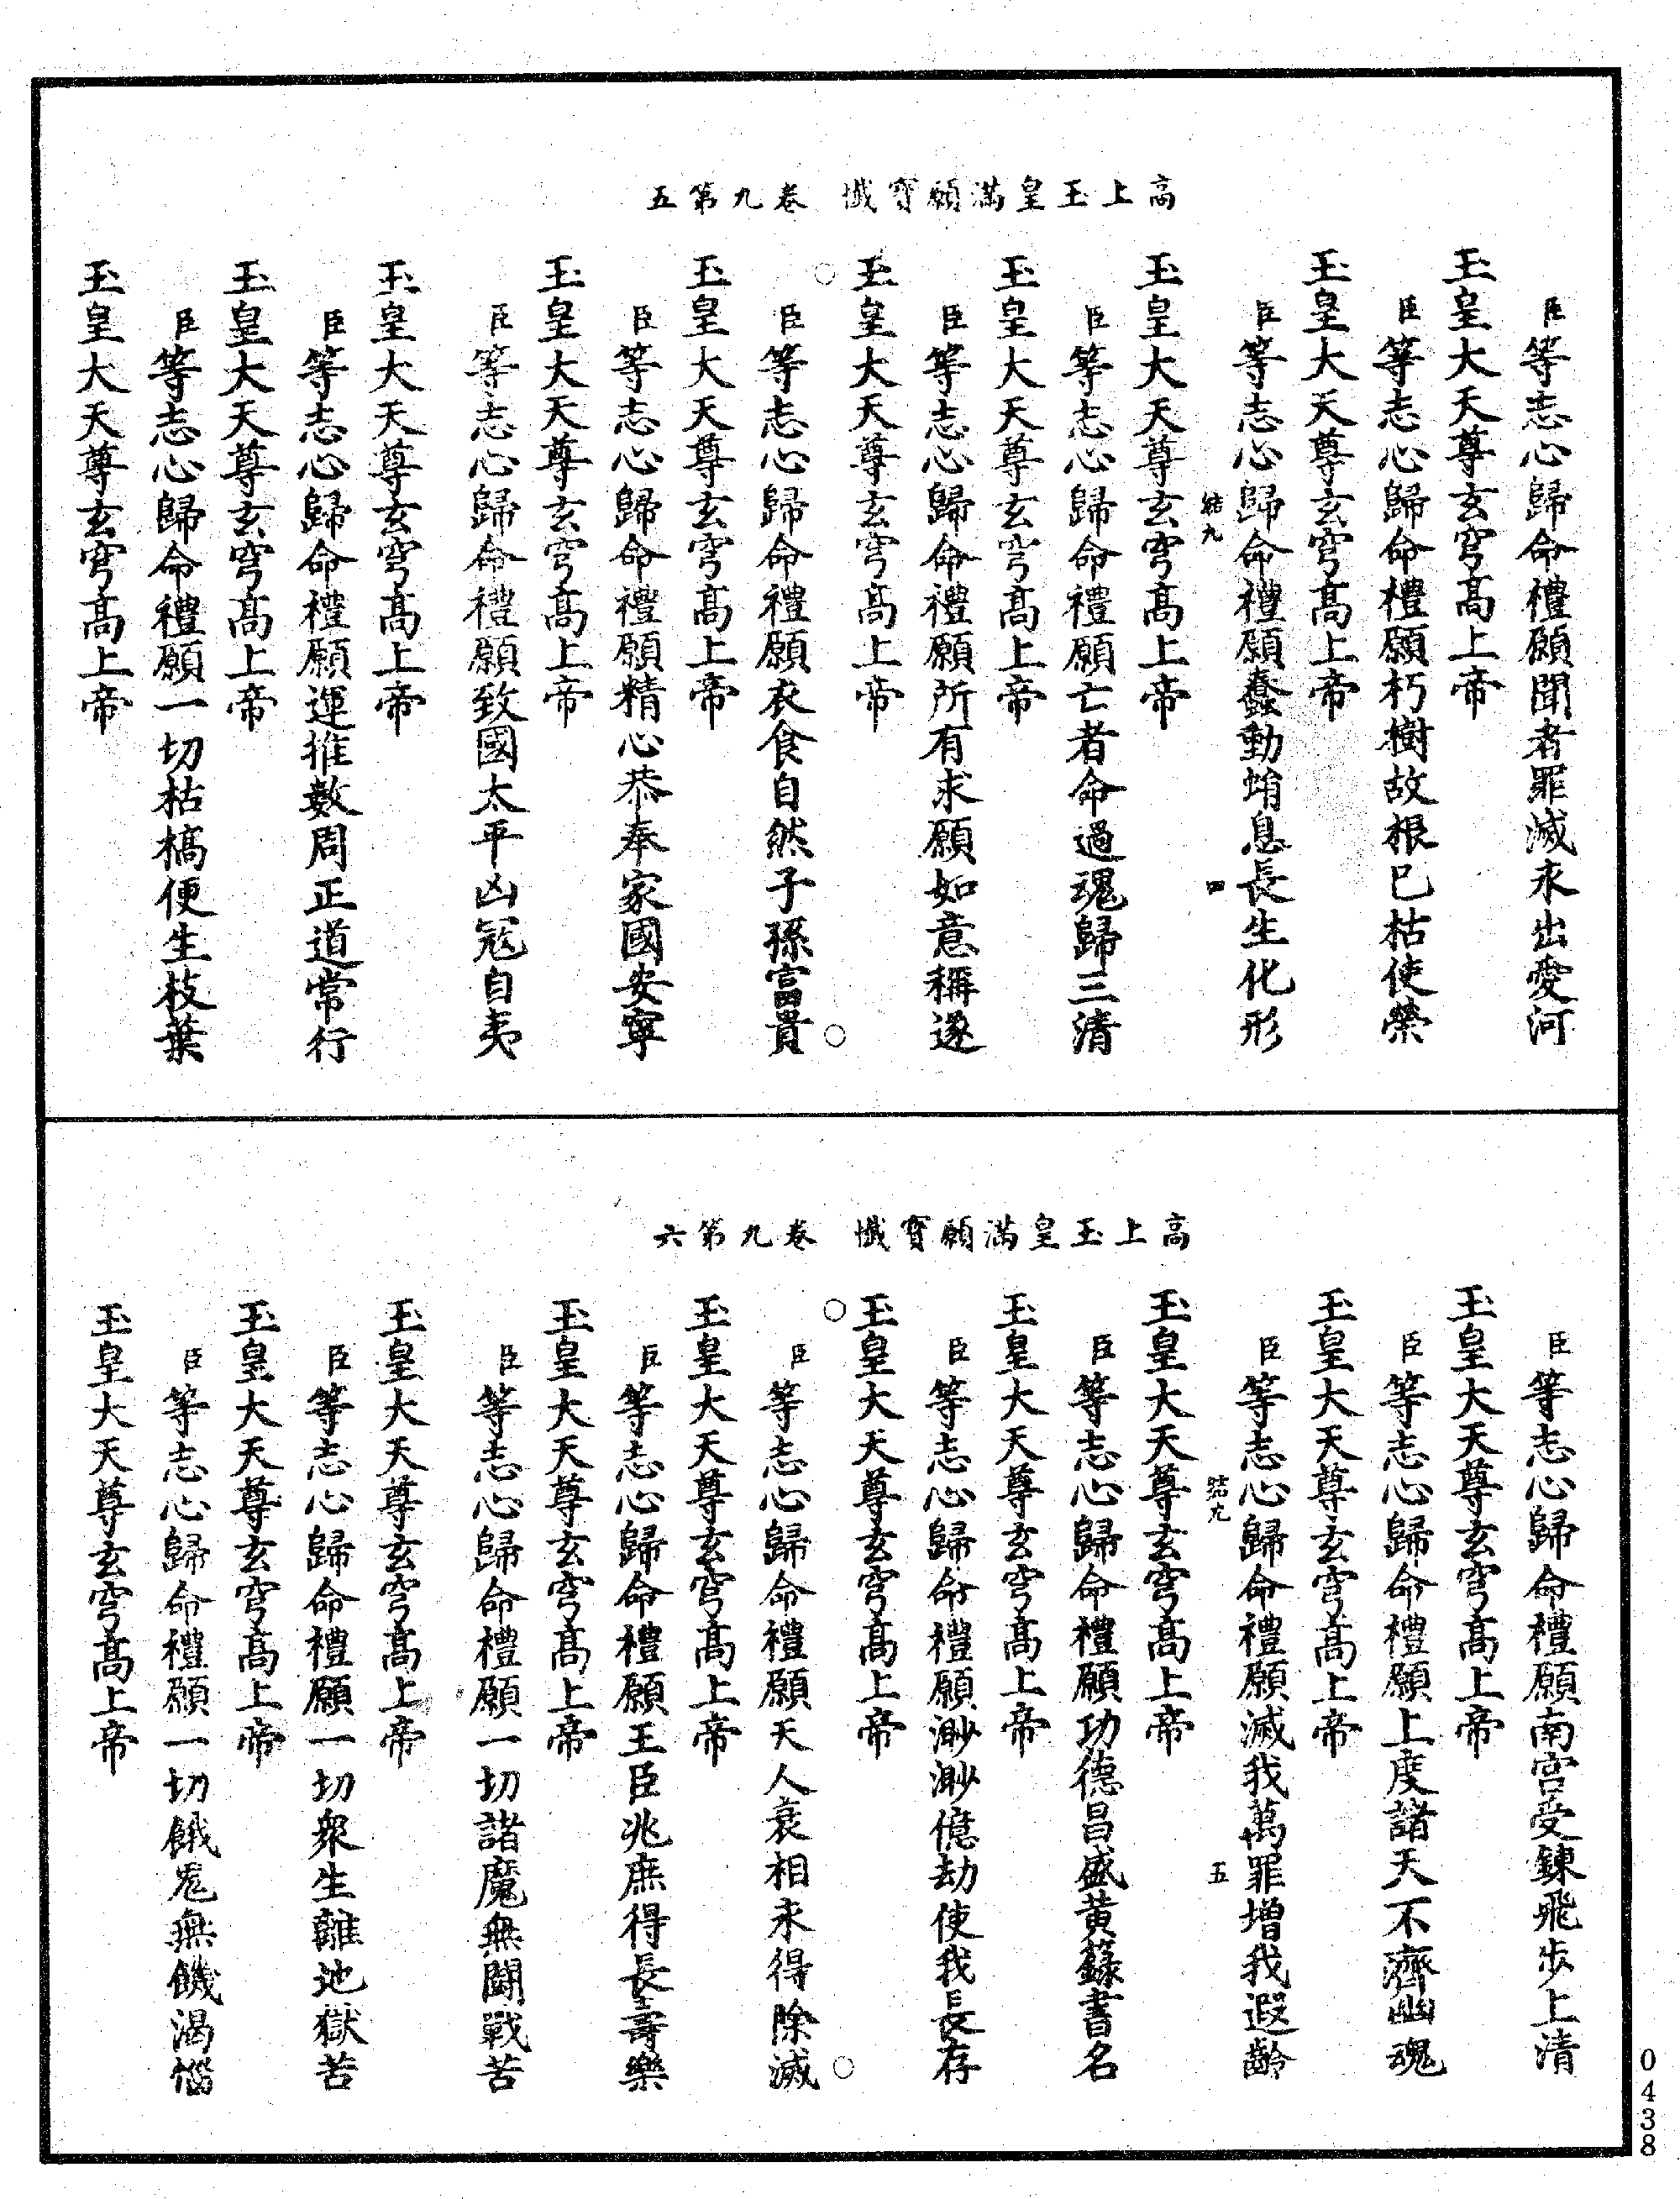 高上玉皇滿願寶懺 卷九第五
臣等志心歸命禮願聞者罪滅永出愛河
玉皇大天尊玄穹高上帝
臣等志心歸命禮願朽樹故根已枯使榮
玉皇大天尊玄穹高上帝
臣等志心歸命禮願蠢動蛸息長生化形
結九 四
玉皇大天尊玄穹高上帝
臣等志心歸命禮願亡者命過魂歸三清
玉皇大天尊玄穹高上帝
臣等志心歸命禮願所有求願如意稱遂
玉皇大天尊玄穹高上帝
臣等志心歸命禮願衣食自然子孫富貴
玉皇大天尊玄穹高上帝
臣等志心歸命禮願精心恭奉家國安寧
玉皇大天尊玄穹高上帝
臣等志心歸命禮願致國太平凶冦自夷
玉皇大天尊玄穹高上帝
臣等志心歸命禮願運推數周正道常行
玉皇大天尊玄穹高上帝
臣等志心歸命禮願一切枯槁便生枝葉
玉皇大天尊玄穹高上帝
高上玉皇滿願寶懺 卷九第六
臣等志心歸命禮願南宮受鍊飛步上清
玉皇大天尊玄穹高上帝
臣等志心歸命禮願上度諸天下濟幽魂
玉皇大天尊玄穹高上帝
臣等志心歸命禮願滅我萬罪增我遐齡
結九 五
玉皇大天尊玄穹高上帝
臣等志心歸命禮願功德昌盛黃籙書名
玉皇大天尊玄穹高上帝
臣等志心歸命禮願渺渺億劫使我長存
玉皇大天尊玄穹高上帝
臣等志心歸命禮願天人衰相求得除滅
玉皇大天尊玄穹高上帝
臣等志心歸命禮願王臣兆庶得長壽樂
玉皇大天尊玄穹高上帝
臣等志心歸命禮願一切諸魔無鬪戰苦
玉皇大天尊玄穹高上帝
臣等志心歸命禮願一切衆生離地獄苦
玉皇大天尊玄穹高上帝
臣等志心歸命禮願一切餓鬼無饑渴惱
玉皇大天尊玄穹高上帝
0438